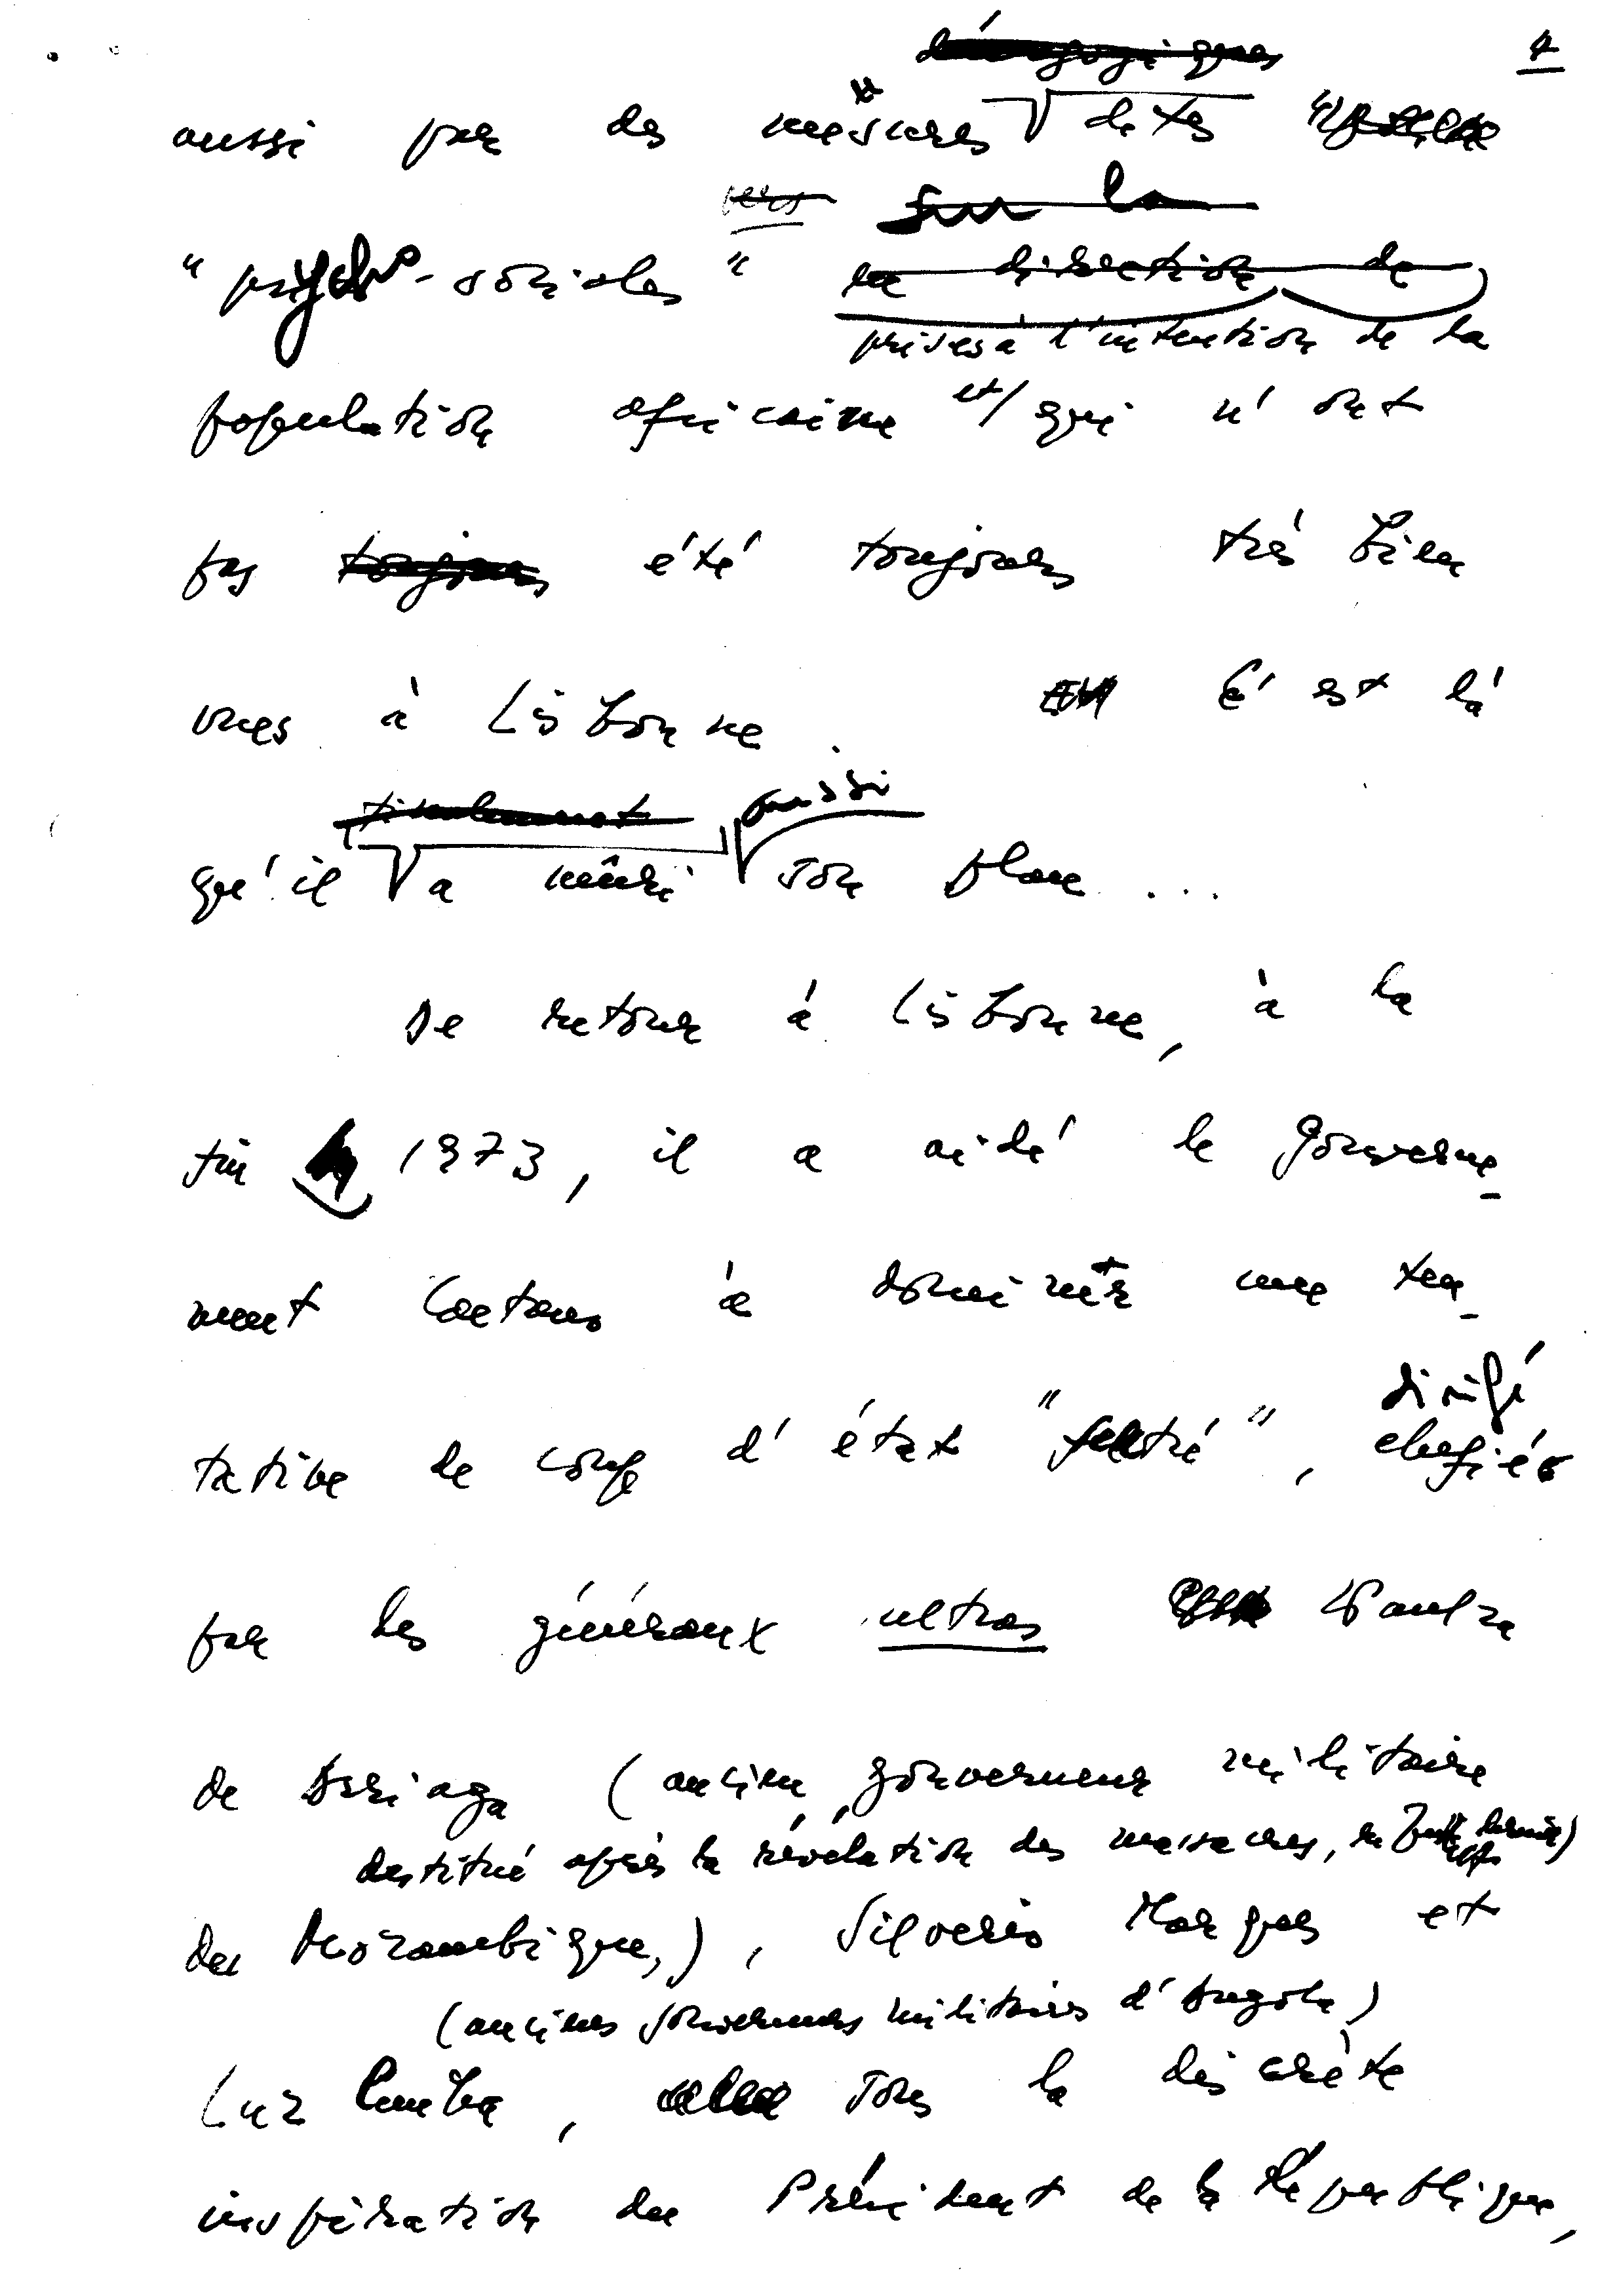 aussi par des mesures dites
"psycho-sociales"
la direction de
prises à l'intention de la
population africaine et/qui n'ont
pas toujours été toujours très bien
vues à Lisbonne. C'est là
aussi
qu'il a mûri son plan ...
De retour à Lisbonne, à la
fin 1973, il a aidé le gouverne-
ment Caetano à dominer une ten-
dirigé
tative de coup d'état "feutré",
par les généraux ultras Kaulza
de Arriaga (ancien gouverneur militaire
destitué après la révélation des massacres, en
du Mozambique,), Silverio Marques et
(anciens gouverneurs militaires d'Angola)
Luz Cunha, sous la discrète
inspiration du Président de la République,